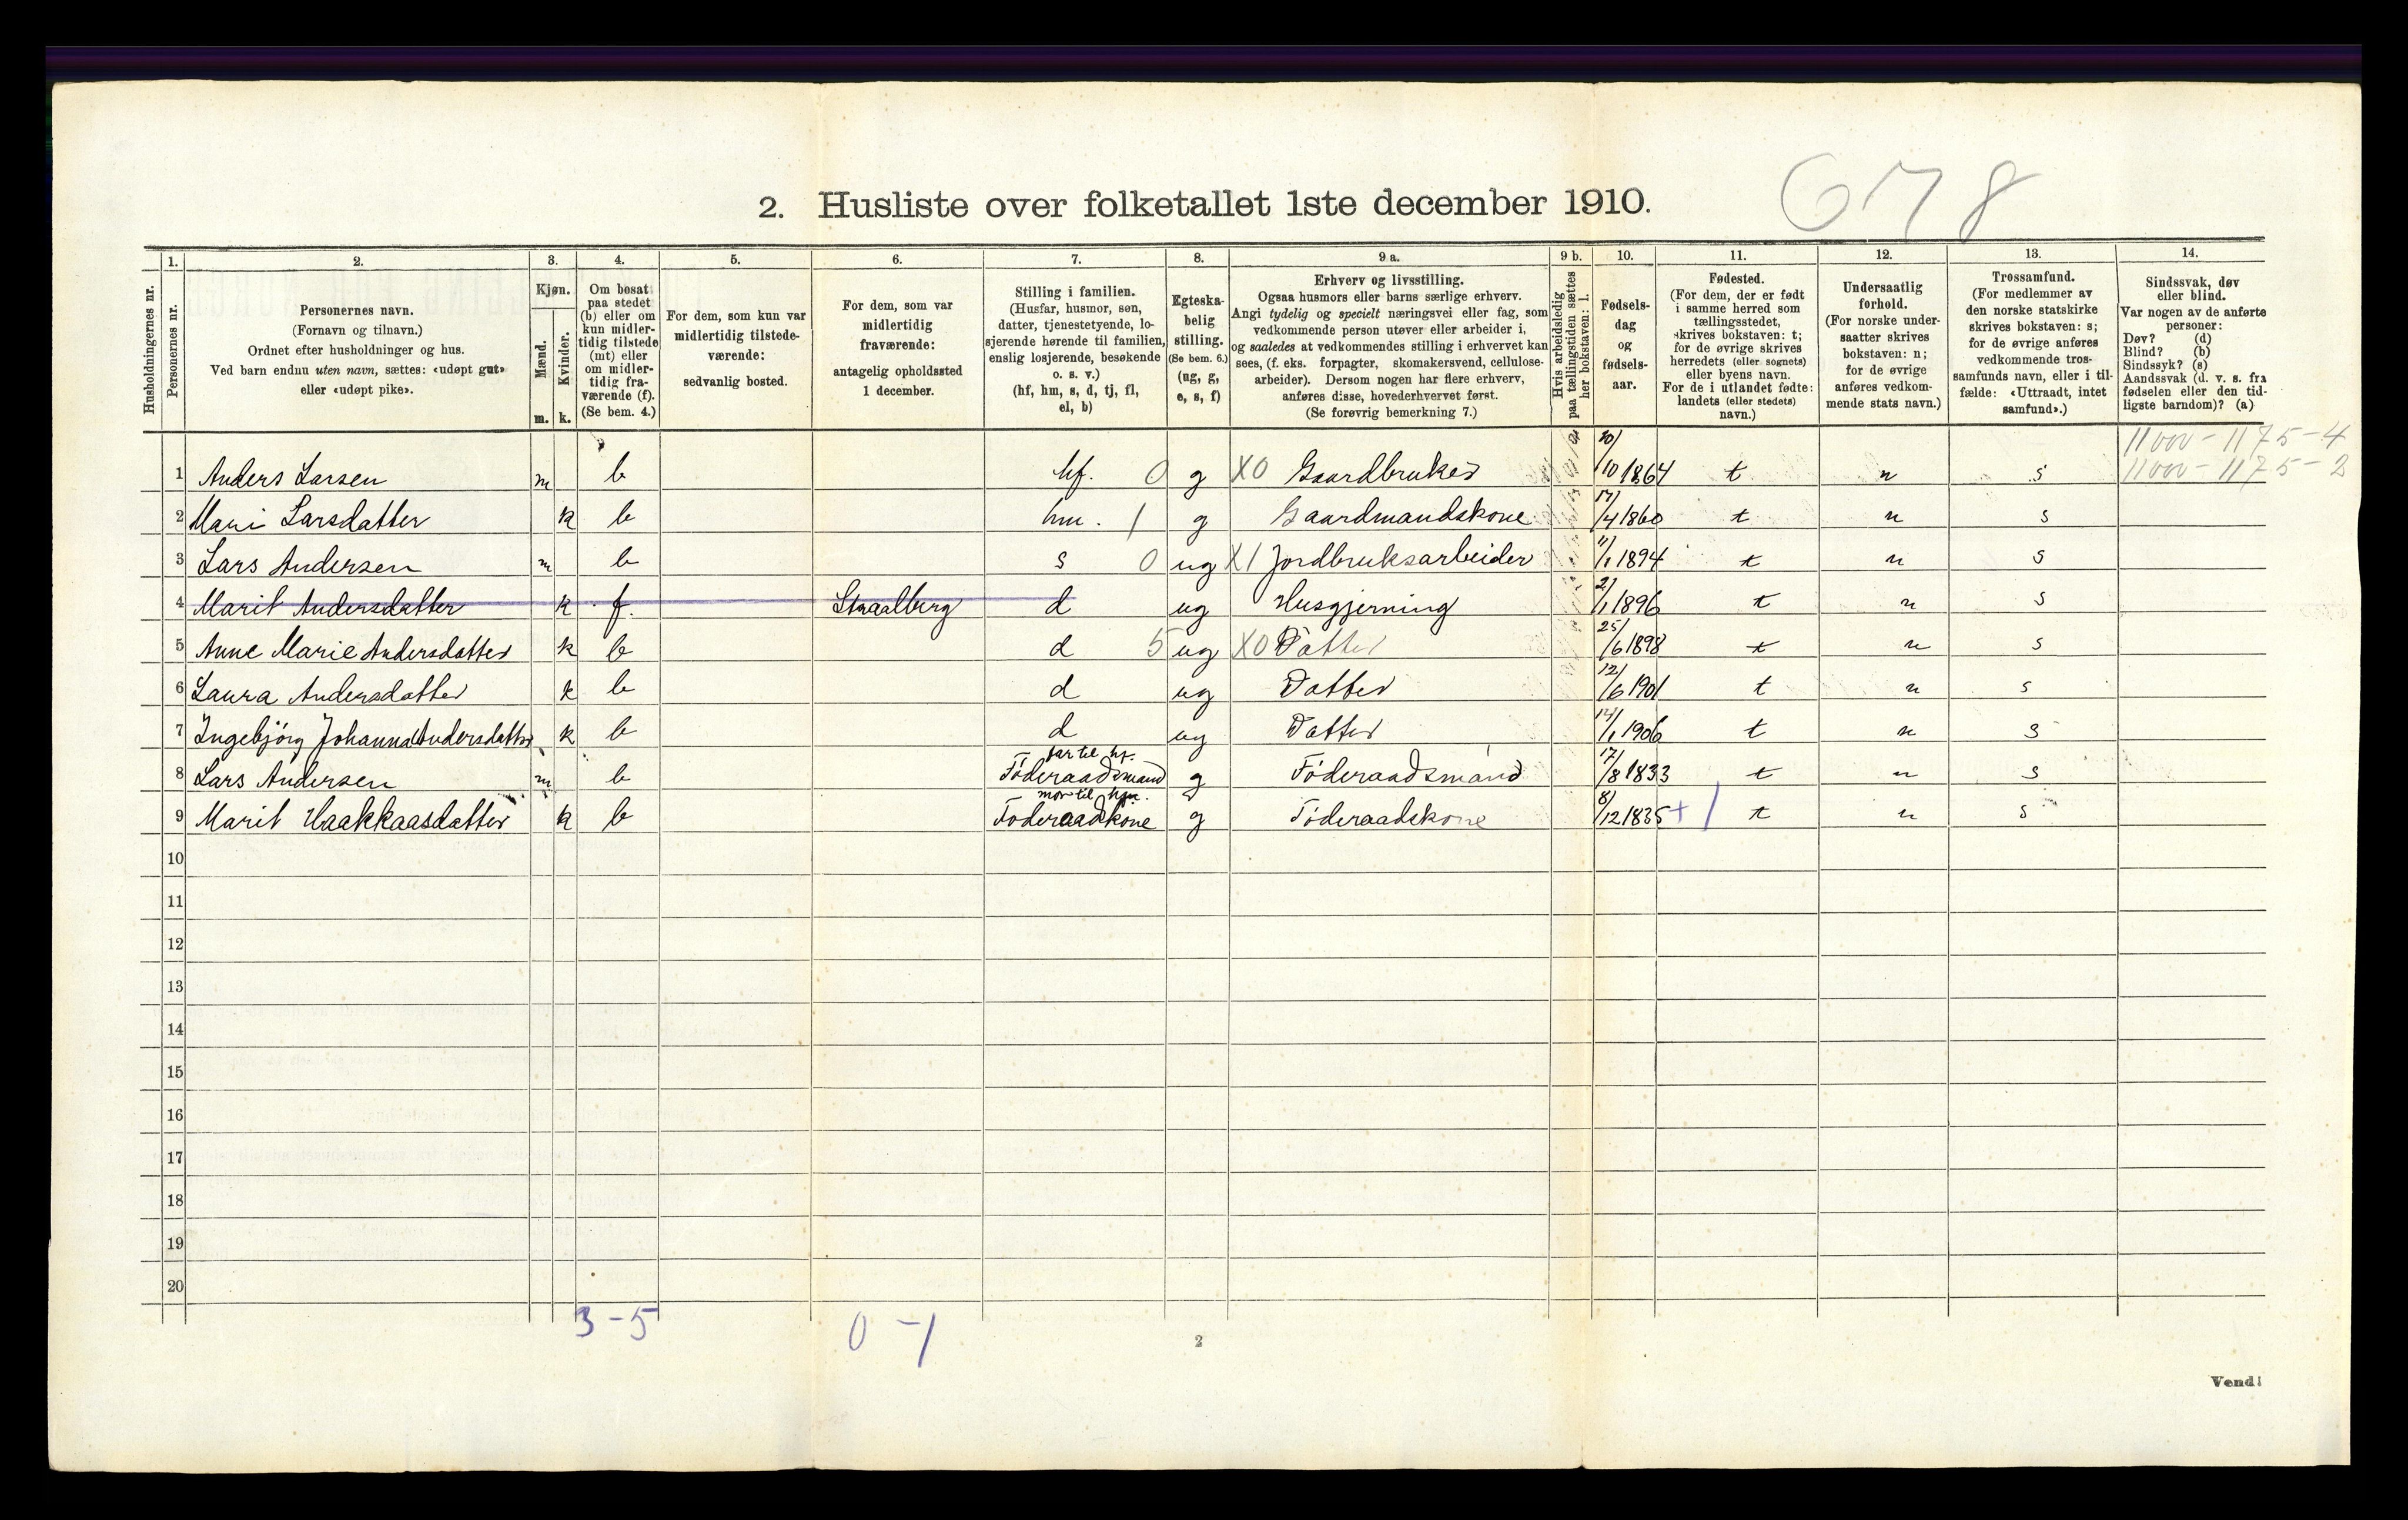 678
2. Husliste over folketallet 1ste december 1910.
Husholdningernes nr.
1.
Personernes nr.
2.
Personernes navn.
(Fornavn og tilnavn.)
Ordnet efter husholdninger og hus.
Ved barn endnu uten navn, sættes: «udøpt gut»
eller «udøpt pike».
3.
Kjøn.
Mænd.
m.
Kvinder.
k.
4.
Om bosat
paa stedet
(b) eller om
kun midler-
tidig tilstede
(mt) eller
om midler-
tidig fra-
værende (f).
(Se bem. 4.)
5.
For dem, som kun var
midlertidig tilstede-
værende:
sedvanlig bosted.
6.
For dem, som var
midlertidig
fraværende:
antagelig opholdssted
1 december.
7.
Stilling i familien.
(Husfar, husmor, søn,
datter, tjenestetyende, lo-
sjerende hørende til familien,
enslig losjerende, besøkende
o. s. v.)
(hf, hm, s, d, tj, fl,
el, b)
8.
Egteska-
belig
stilling.
(Se bem. 6.)
(ug, g,
e, s, f)
9 a.
Erhverv og livsstilling.
Ogsaa husmors eller barns særlige erhverv.
Angi tydelig og specielt næringsvei eller fag, som
vedkommende person utøver eller arbeider i,
og saaledes at vedkommendes stilling i erhvervet kan
sees, (f. eks. forpagter, skomakersvend, cellulose-
arbeider). Dersom nogen har flere erhverv,
anføres disse, hovederhvervet først.
(Se forøvrig bemerkning 7.)
9 b.
Hvis arbeidsledig
paa tællingstiden sættes
her bokstaven: l.
10.
Fødsels-
dag
og
fødsels-
aar.
11.
Fødested.
(For dem, der er født
i samme herred som
tællingsstedet,
skrives bokstaven: t;
for de øvrige skrives
herredets (eller sognets)
eller byens navn.
For de i utlandet fødte:
landets (eller stedets)
navn.)
12.
Undersaatlig
forhold.
(For norske under-
saatter skrives
bokstaven: n;
for de øvrige
anføres vedkom-
mende stats navn.)
13.
Trossamfund.
(For medlemmer av
den norske statskirke
skrives bokstaven: s;
for de øvrige anføres
vedkommende tros-
samfunds navn, eller i til-
fælde: «Uttraadt, intet
samfund».)
14.
Sindssvak, døv
eller blind.
Var nogen av de anførte
personer:
Døv? (d)
Blind? (b)
Sindssyk? (s)
Aandssvak (d. v. s. fra
fødselen eller den tid-
ligste barndom)? (a)
1 Anders Larsen m b hf. 0 g X0 Gaardbruker 10/10 1864 t n s
2 Mari Larsdatter k b hm. 1 g Gaardmandskone 17/4 1860 t n s
3 Lars Andersen m b s 0 ug X1 Jordbruksarbeider 11/1 1894 t n s
4 Marit Andersdatter k f. Straalberg d ug Husgjerning 2/1 1896 t n s
5 Anne Marie Andersdatter k b d 5 ug X0 Datter 25/6 1898 t n s
6 Laura Andersdatter k b d ug Datter 12/6 1901 t n s
7 Ingebjörg Johanna Andersdatter k b d ug Datter 14/1 1906 t n s
far til hf.
8 Lars Andersen m b Föderaadsmand g Föderaadsmand 17/8 1833 t n s
mor til
9 Marit Haakkaasdatter k b Föderaadkone g Föderaadskone 8/12 1835 + 1 t n s
10
11
12
13
14
15
16
17
18
19
20
3-5
0-1
2
Vend!